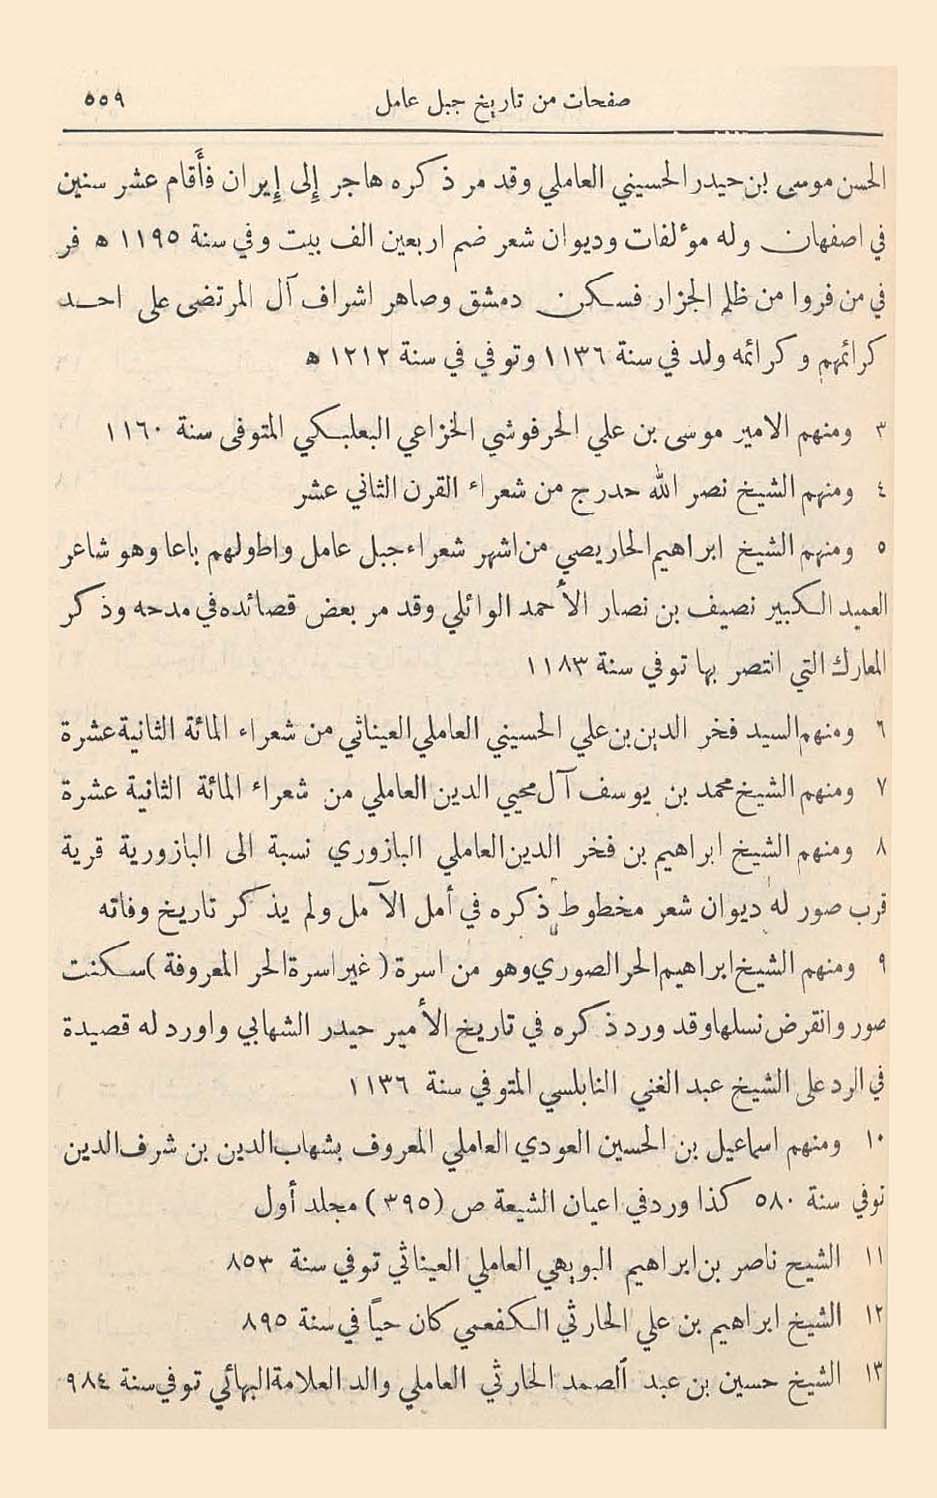 صفحات من تاريخ جبل عامل ٥٥٩
الحسن موسى بن حيدر الحسيني العاملي وقد مر ذكره هاجر إلى إيران فأقام عشر سنين
في اصفهان وله مؤلفات وديوان شعر ضم اربعين الف بيت وفي سنة ١١٩٥ ه فر
في من فروا من ظلم الجزار فسكن دمشق وصاهر اشراف آل المرتضى على احد
كرائمهم وكرائمه ولد في سنة ١١٣٦ وتوفي في سنة ١٢١٢ ه
٣ ومنهم الامير موسى بن علي الحرفوشي الخزاعي البعلبكي المتوفى سنة ١١٦٠
٤ ومنهم الشيخ نصر الله حدرج من شعراء القرن الثاني عشر
٥ ومنهم الشيخ ابراهيم الحاريصي من اشهر شعراء جبل عامل واطولهم باعا وهو شاعر
العميد الكبير نصيف بن نصار الأحمد الوائلي وقد مر بعض قصائده في مدحه وذكر
المعارك التي انتصر بها توفي سنة ١١٨٣
٦ ومنهم السيد فخر الدين بن علي الحسيني العاملي العيناثي من شعراء المائة الثانية عشرة
٧ ومنهم الشيخ محمد بن يوسف آل محيي الدين العاملي من شعراء المائة الثانية عشرة
٨ ومنهم الشيخ ابراهيم بن فخر الدين العاملي البازوري نسبة الى البازورية قرية
قرب صور له ديوان شعر مخطوط ذكره في أمل الآمل ولم يذكر تاريخ وفاته
٩ ومنهم الشيخ ابراهيم الحر الصوري وهو من اسرة ( غير اسرة الحر المعروفة ) سكنت
صور وانقرض نسلها وقد ورد ذكره في تاريخ الأمير حيدر الشهابي واورد له قصيدة
في الرد على الشيخ عبد الغني النابلسي المتوفي سنة ١١٣٦
١٠ ومنهم اسماعيل بن الحسين العودي العاملي المعروف بشهاب الدين بن شرف الدين
توفي سنة ٥٨٠ كذا ورد في اعيان الشيعة ص (٣٩٥) مجلد أول
١١ الشيح ناصر بن ابراهيم البويهي العاملي العيناثي توفي سنة ٨٥٣
١٢ الشيخ ابراهيم بن علي الحارثي الكفعمي كان حياً في سنة ٨٩٥
١٣ الشيخ حسين بن عبد الصمد الحارثي العاملي والد العلامة البهائي توفي سنة ٩٨٤